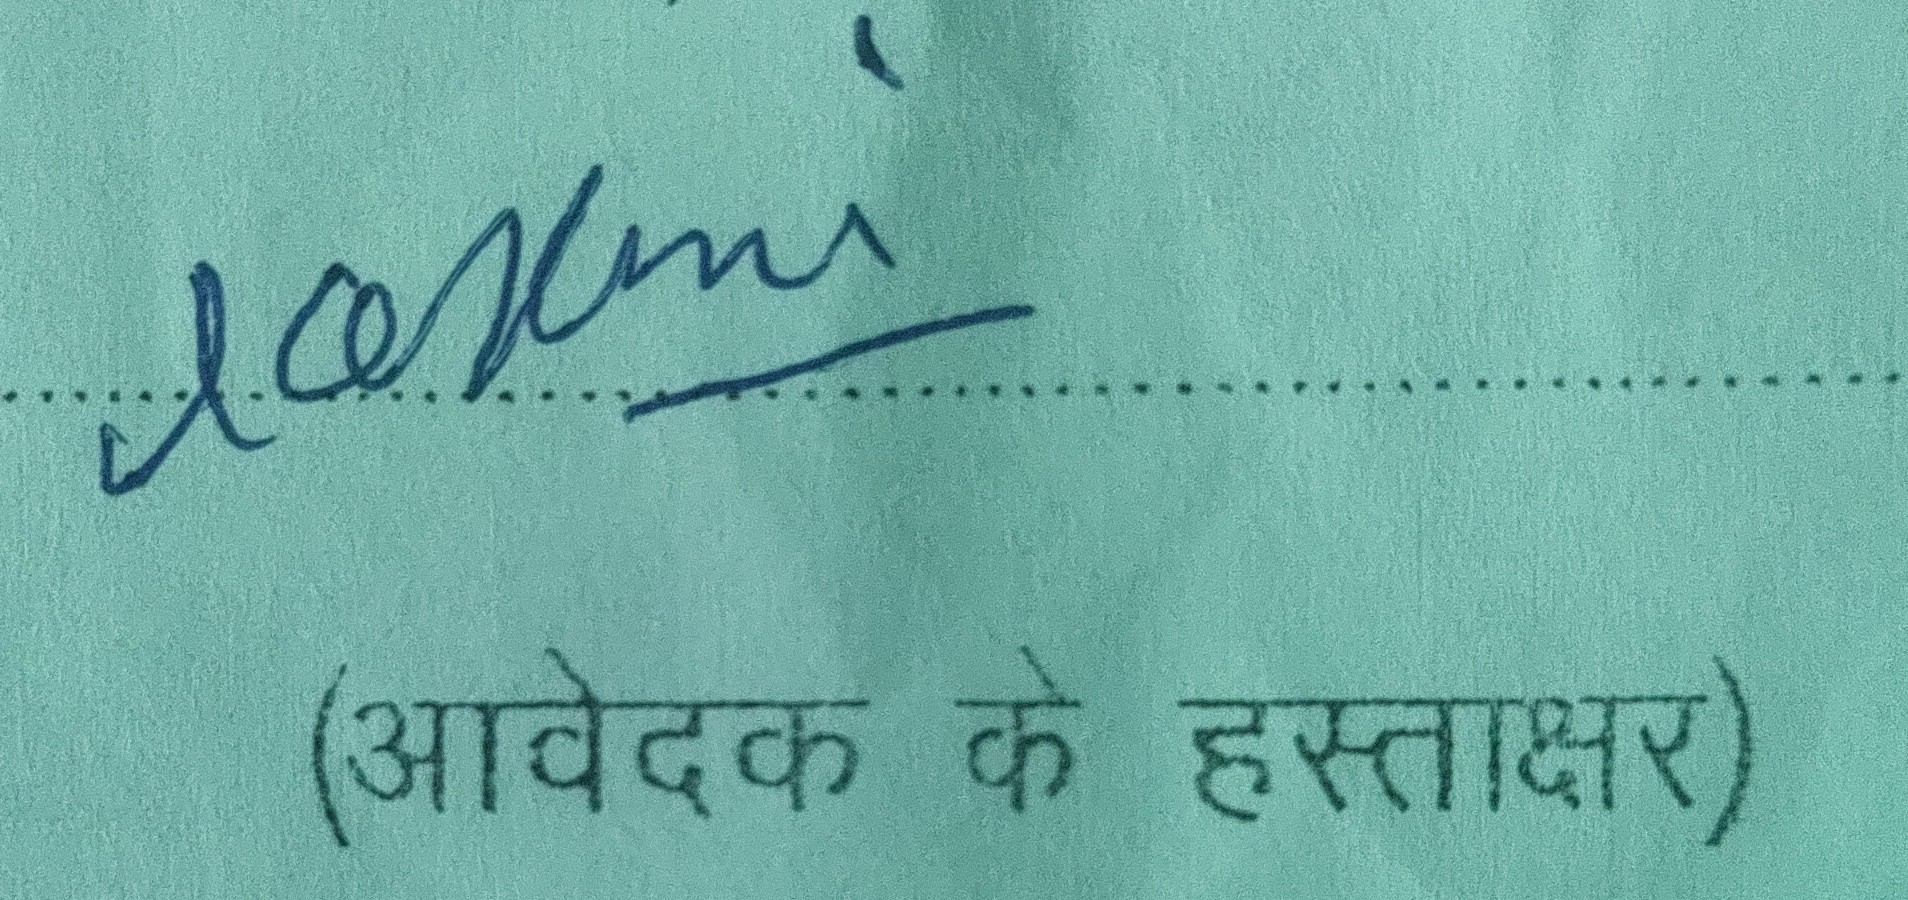 laxmi
(आवेदक के हस्ताक्षर)